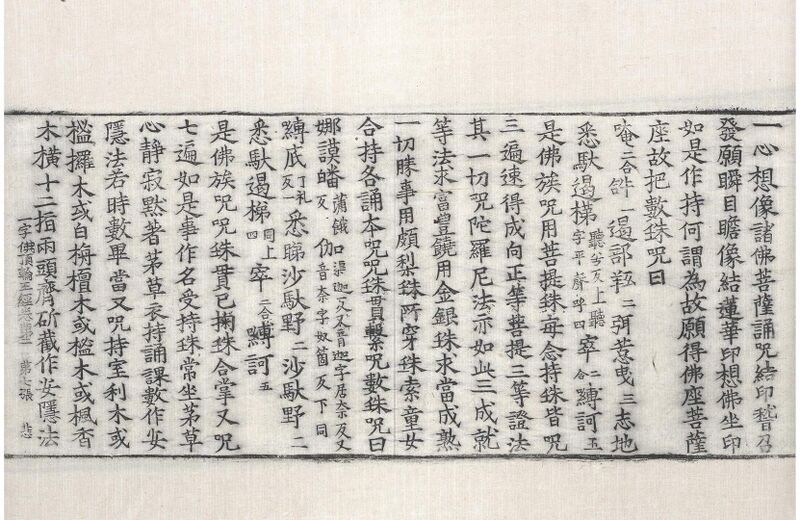 一心想像諸佛菩薩誦咒結印瞥召
發願瞬目瞻像結蓮華印想佛坐印
如是作持何謂為故願得佛座菩薩
座故把數珠咒曰
唵二合一遏部羝二弭惹曳三志地
悉馱遏梯聽劣反上聽字平聲呼四宰二合縛訶五
是佛族咒用菩提珠每念持珠皆咒
三遍速得成向正等菩提三等證法
其一切咒陀羅尼法亦如此三成就
等法求富豐饒用金銀珠求當成熟
一切勝事用頗梨珠所穿珠索童女
合持各誦本咒咒珠貫繫咒數珠咒曰
娜謨皤蒲餓反伽音奈字奴箇反下同
縛底丁礼反一悉睇沙馱野二沙馱野二
悉馱遏梯同上四宰二合縛訶五
是佛族咒咒珠貫已掬珠合掌又咒
七遍如是事作名受持珠常坐茅草
心靜寂默著茅草衣持誦課數作安
隱法若時數畢當又咒持室利木或
檻攞木或白栴檀木或檻木或楓香
木橫十二指兩頭齊斫截作安隱法
一字佛頂輪王經第七張 悲